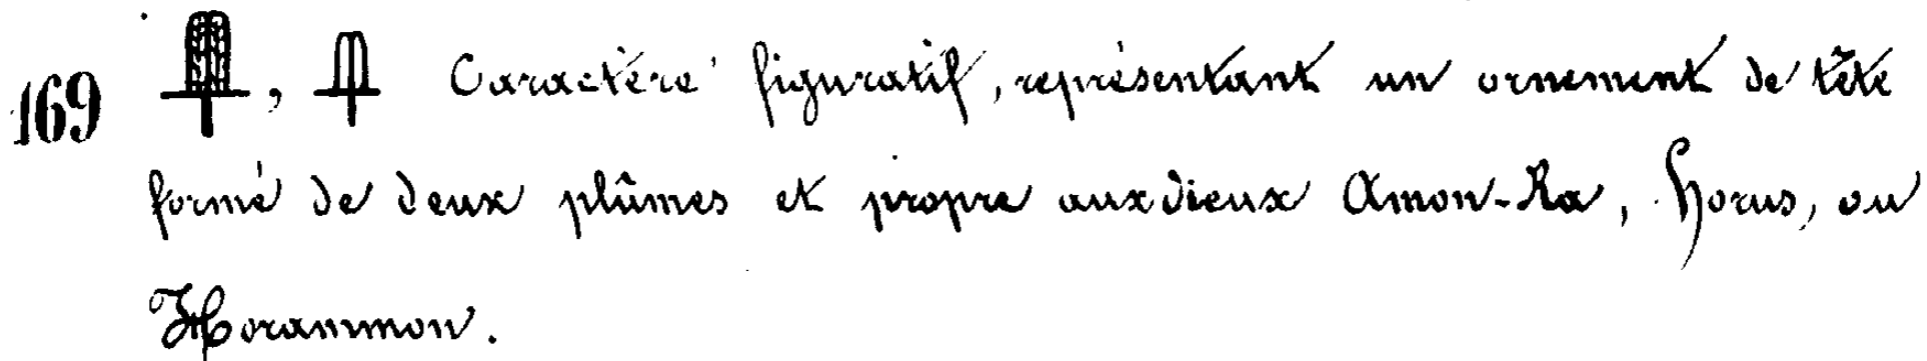 169 , Caractère figuratif, représentant un ornement de tête
formé de deux plûmes et propre aux dieux Amon-Ra, Horus, ou
Horammon.